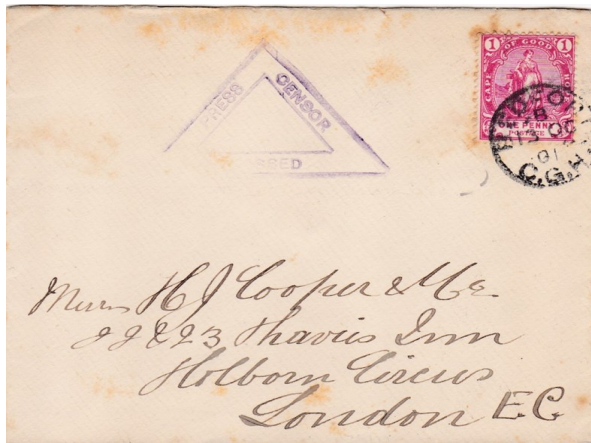 PRESS CENSOR
PASSED
1 CAPE OF GOOD HOPE 1
ONE PENNY
POSTAGE
B
OC
01
C.G.H.
Messrs H J Cooper & Co
22 & 23 Thavies Inn
Holborn Circus
London EC